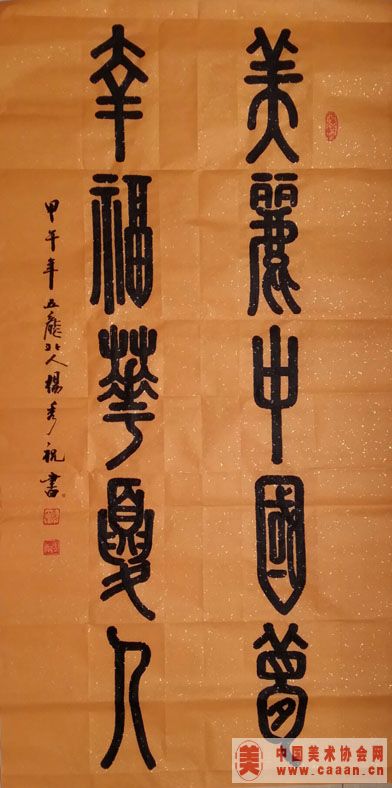 美麗中國夢
幸福華夏人
甲午年五龍北人楊秀祝書
中国美术协会网
www.caaan.cn